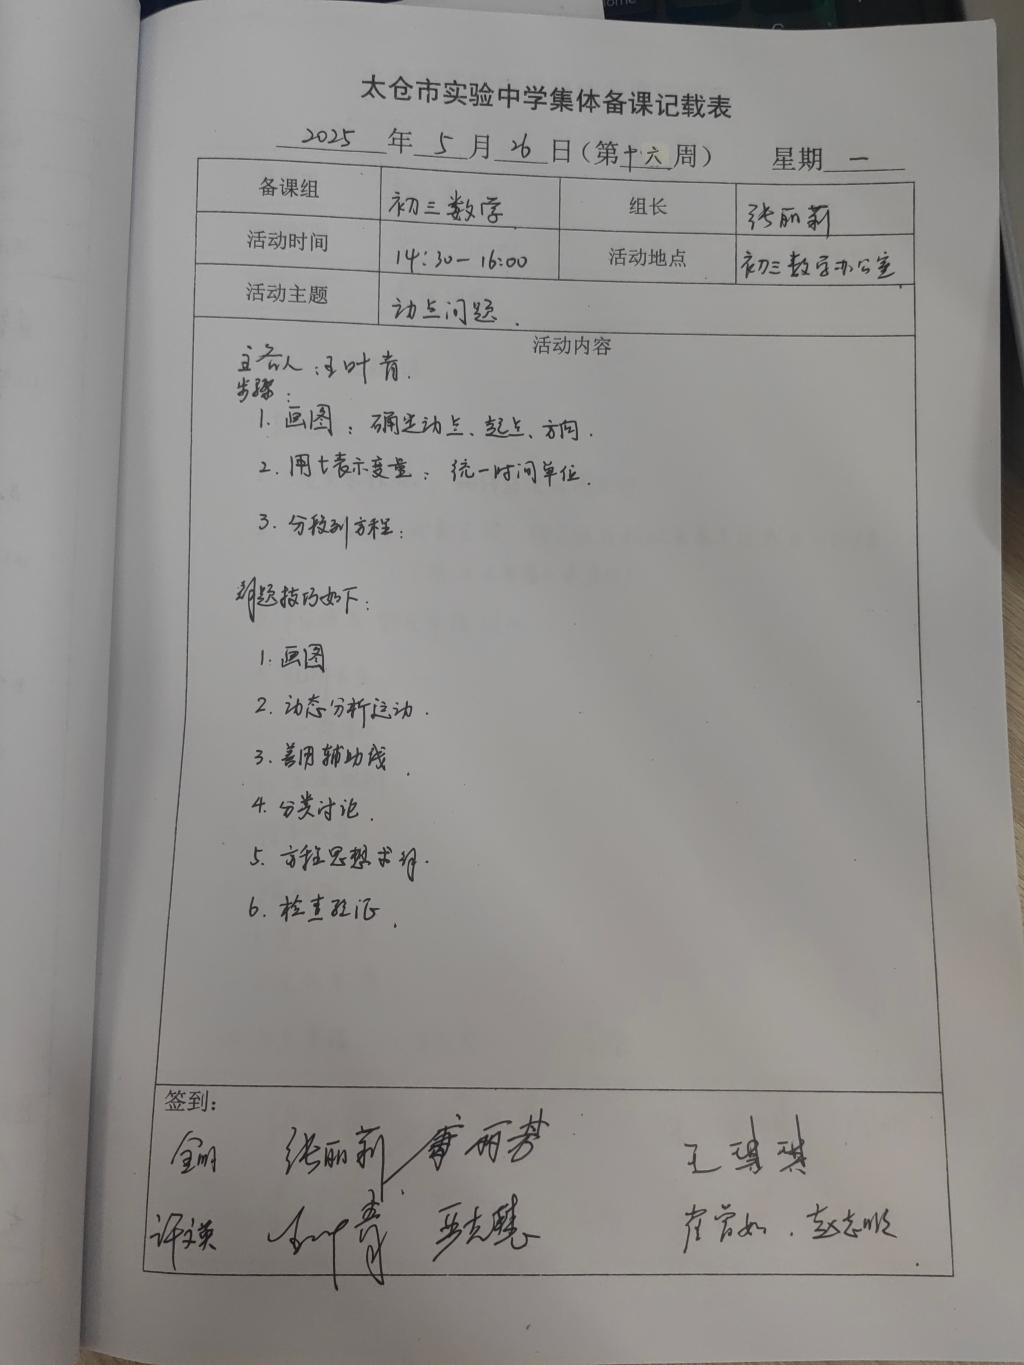 太仓市实验中学集体备课记载表
2025 年 5 月 26 日（第十六周） 星期 一
备课组 初三数学 组长 张丽莉
活动时间 14:30-16:00 活动地点 初三数学办公室
活动主题 动点问题.
活动内容
主备人:王叶青.
步骤:
1. 画图: 确定动点、起点、方向.
2. 用t表示变量: 统一时间单位.
3. 分段列方程:
解题技巧如下:
1. 画图
2. 动态分析运动.
3. 善用辅助线.
4. 分类讨论.
5. 方程思想求解.
6. 检查验证.
签到:
张丽莉 王琪琪
许文英 王叶青 赵志明